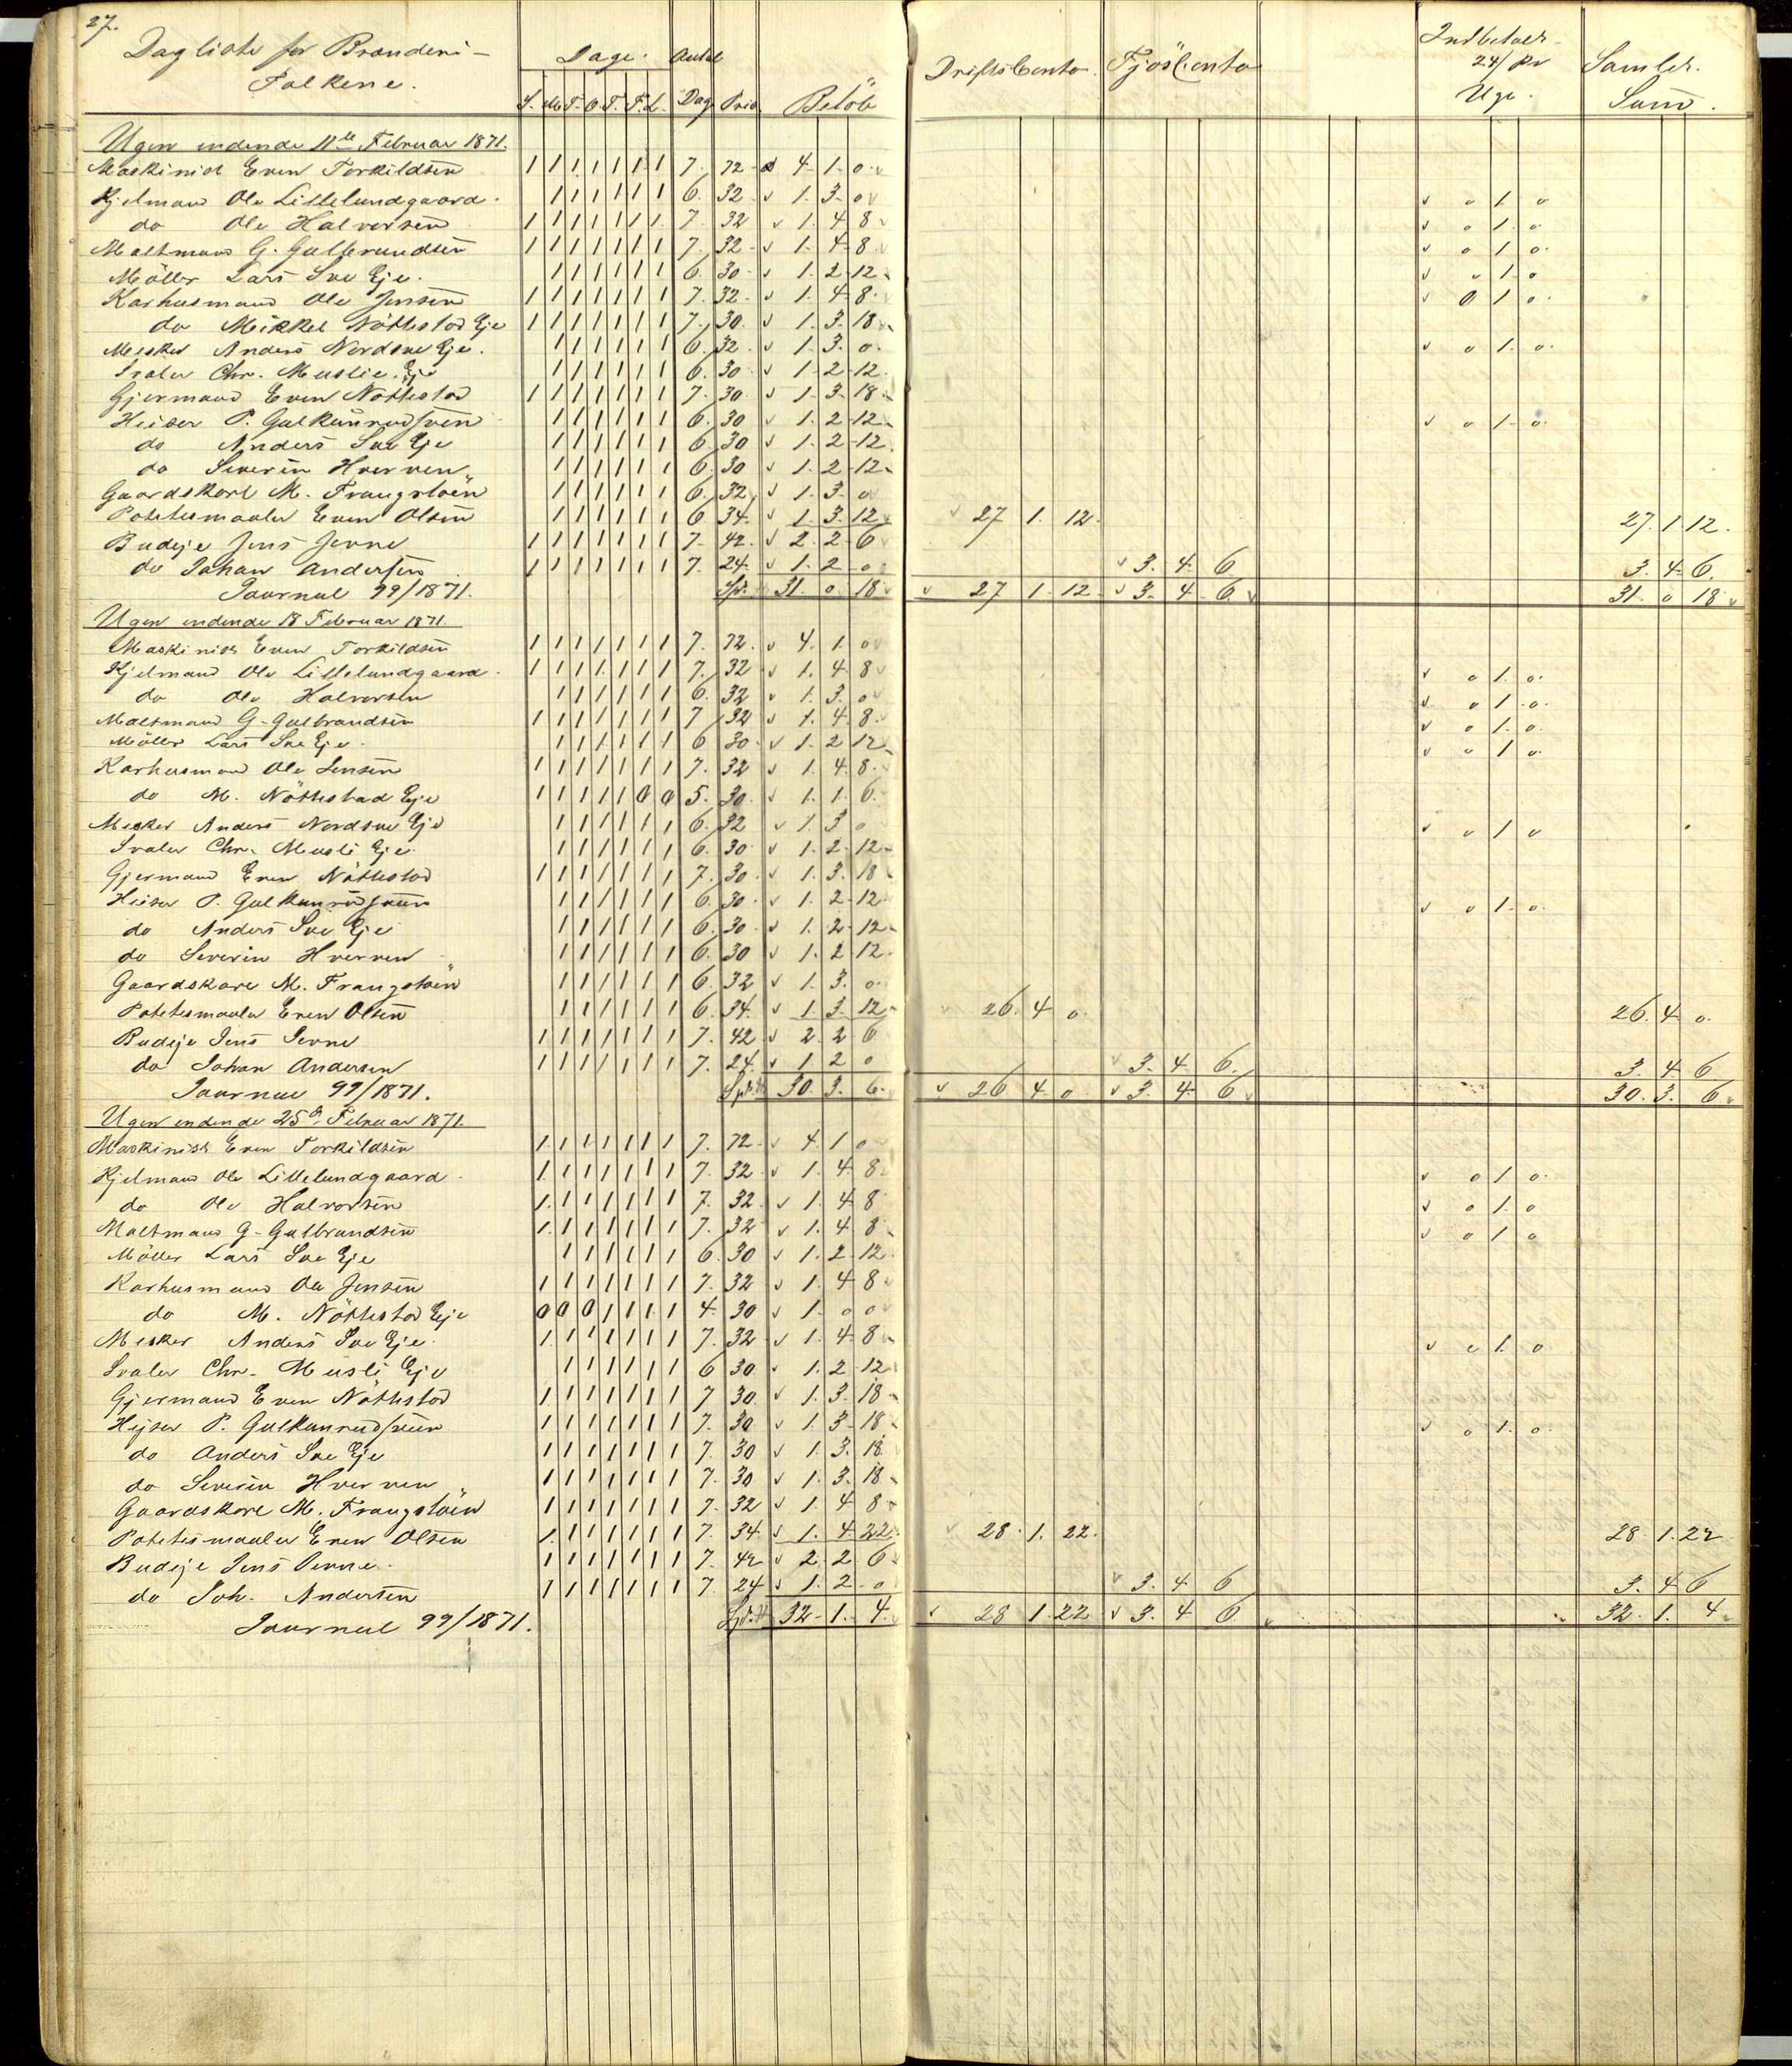 27.
Dagliste for Brænderi-
Folkene.
Dage. Antal
S. M. T. O. T. F. L. Dag Pris Beløb
DriftsConto. FjösConto Indbetalt 24/ Uge. Samlet Sum.
Ugen endende 11te Februar 1871.
Maskinist Even Torkildsen 1 1 1 1 1 1 1 7. 72 4 1 0
Kjelmand Ole Lillelundgaard. 1 1 1 1 1 1 6. 32 1. 3. 0 0 1 0
do Ole Halvorsen 1 1 1 1 1 1 1 7. 32 1. 4 8 0 1. 0.
Maltmand G. Gulbrandsen 1 1 1 1 1 1 1 7. 32 1. 4 8 0 1. 0.
Möller Lars Soe Eje. 1 1 1 1 1 1 6. 30 1. 2 12 0 1. 0
Karhusmand Ole Jensen 1 1 1 1 1 1 1 7. 32 1. 4 8. 0 1 0.
do Mikkel Nöttestad Eje 1 1 1 1 1 1 1 7. 30. 1. 3. 18
Mesker Anders Nordsoe Eje. 1 1 1 1 1 1 6. 32 1. 3. 0. 0 1. 0.
Svaler Chr. Muslie Eje 1 1 1 1 1 1 6. 30 1 2 12.
Gjermand Even Nöttestad 1 1 1 1 1 1 1 7. 30 1 3 18
Heiser P. Gulkunrud 1 1 1 1 1 1 6. 30 1. 2 12 0 1 0.
do Anders Soe Eje 1 1 1 1 1 1 6. 30 1. 2 12.
do Severin Hverven 1 1 1 1 1 1 6. 30 1. 2 12
Gaardskarl M. Frangstöen 1 1 1 1 1 1 6. 32 1. 3. 0
Potetesmaaler Even Olsen 1 1 1 1 1 1 6 34. 1. 3. 12 27 1. 12. 27. 1. 12.
Budeje Jens Jerne 1 1 1 1 1 1 1 7. 42. 2. 2 6
do Johan Andersen 1 1 1 1 1 1 1 7. 24. 1. 2 0 3. 4. 6 3. 4. 6.
Journal 99/1871. Spd. 31. 0 18 27 1. 12. 3. 4 6. 31. 0 18
Ugen endende 18 Februar 1871.
Maskinist Even Torkildsen 1 1 1 1 1 1 1 7. 72. 4. 1. 0
Kjelmand Ole Lillelundgaard. 1 1 1 1 1 1 1 7. 32 1. 4 8 0 1. 0.
do Ole Halvorsen 1 1 1 1 1 1 6. 32 1. 3. 0 0 1 0.
Maltmand G. Gulbrandsen 1 1 1 1 1 1 1 7 32 1. 4 8. 0 1. 0.
Möller Lars Soe Eje. 1 1 1 1 1 1 6 30. 1. 2 12 0 1 0.
Karhusmand Ole Jensen 1 1 1 1 1 1 1 7. 32 1. 4. 8.
do M. Nöttestad Eje 1 1 1 1 1 0 0 5. 30. 1. 1. 6.
Mesker Anders Nordsoe Eje 1 1 1 1 1 1 6. 32 1. 3 0 0 1 0
Svaler Chr. Musli Eje. 1 1 1 1 1 1 6. 30. 1. 2 12
Gjermand Even Nöttestad 1 1 1 1 1 1 1 7. 30. 1. 3. 18
Heiser P. Gulkunrud 1 1 1 1 1 1 6. 30. 1. 2 12 0 1. 0.
do Anders Soe Eje 1 1 1 1 1 1 6. 30. 1. 2 12
do Severin Hverven 1 1 1 1 1 1 6. 30 1. 2 12.
Gaardskare M. Frangstöen 1 1 1 1 1 1 6. 32 1. 3. 0.
Potetesmaaler Even Olsen 1 1 1 1 1 1 6. 34. 1. 3. 12 26. 4 0. 26. 4. 0.
Budeje Jens Jerne 1 1 1 1 1 1 1 7. 42 2 2 6
do Johan Andersen 1 1 1 1 1 1 1 7. 24. 1 2 0 3. 4 6. 3. 4. 6
Journal 99/1871. Spd. 30. 3. 6. 26 4 0 3. 4 6 30. 3. 6
Ugen endende 25de Februar 1871.
Maskinist Even Torkildsen 1 1 1 1 1 1 1 7. 72 4 1 0
Kjelmand Ole Lillelundgaard. 1 1 1 1 1 1 1 7. 32 1. 4 8. 0 1 0.
do Ole Halvorsen 1 1 1 1 1 1 1 7. 32 1. 4 8 0 1. 0
Maltmand G. Gulbrandsen 1 1 1 1 1 1 1 7. 32 1. 4 8 0 1 0
Möller Lars Soe Eje 1 1 1 1 1 1 6 30 1. 2 12.
Karhusmand Ole Jensen 1 1 1 1 1 1 1 7. 32 1. 4 8
do M. Nöttestad Eje 0 0 0 1 1 1 1 4. 30 1. 0 0
Mesker Anders Soe Eje. 1 1 1 1 1 1 1 7. 32 1. 4. 8 0 1. 0
Svaler Chr. Musli Eje 1 1 1 1 1 1 6 30. 1. 2 12
Gjermand Even Nöttestad 1 1 1 1 1 1 1 7 30. 1. 3. 18
Hejser P. Gulkunrud 1 1 1 1 1 1 1 7. 30 1. 3 18 0 1. 0.
do Anders Soe Eje 1 1 1 1 1 1 1 7. 30 1. 3. 18.
do Severin Hverven 1 1 1 1 1 1 1 7. 30 1. 3. 18
Gaardskare M. Frangstöen 1 1 1 1 1 1 1 7. 32 1. 4 8
Potetesmaaler Even Olsen 1 1 1 1 1 1 1 7. 34. 1. 4. 22 28. 1. 22. 28 1. 22
Budeje Jens Jerne. 1 1 1 1 1 1 1 7. 42 2 2 6
do Joh. Andersen 1 1 1 1 1 1 1 7. 24 1. 2 0 3. 4. 6 3. 4 6
Journal 99/1871. Spd. 32 1. 4. 28 1. 22 3. 4 6. 32. 1. 4